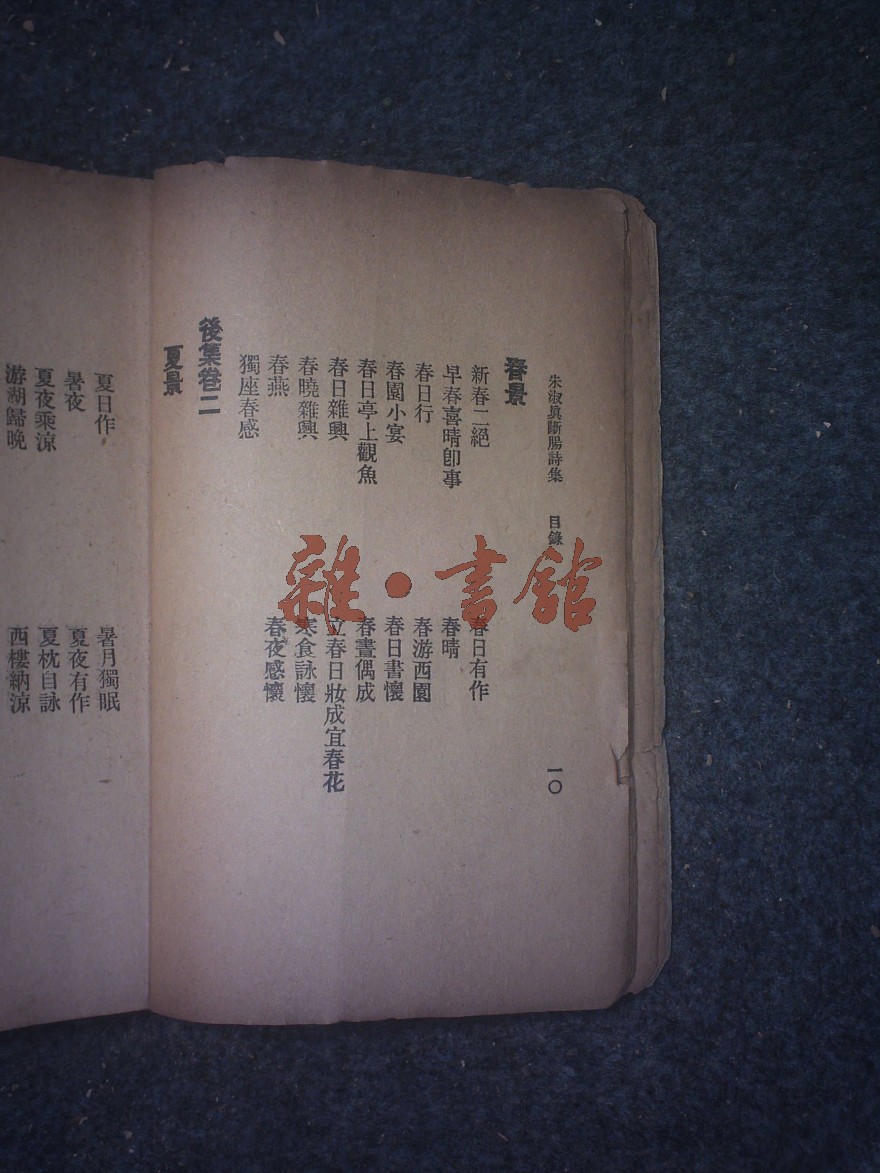 朱淑真斷腸詩集 目錄 一〇
春景
新春二絕 春日有作
早春喜晴卽事 春晴
春日行 春游西園
春園小宴 春日書懷
春日亭上觀魚 春晝偶成
春日雜興 立春日妝成宜春花
春曉雜興 寒食詠懷
春燕 春夜感懷
獨座春感
後集卷二
夏景
夏日作 暑月獨眠
暑夜 夏夜有作
夏夜乘涼 夏枕自詠
游湖歸晚 西樓納涼
雜·書館